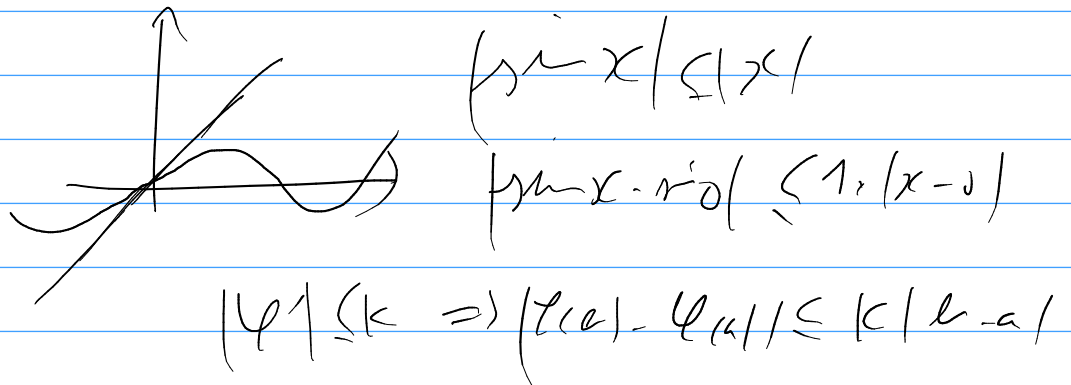 |sin x| ≤ |x|
|sin x - sin 0| ≤ 1 · |x - 0|
|φ'| ≤ k ⇒ |φ(b) - φ(a)| ≤ k |b - a|